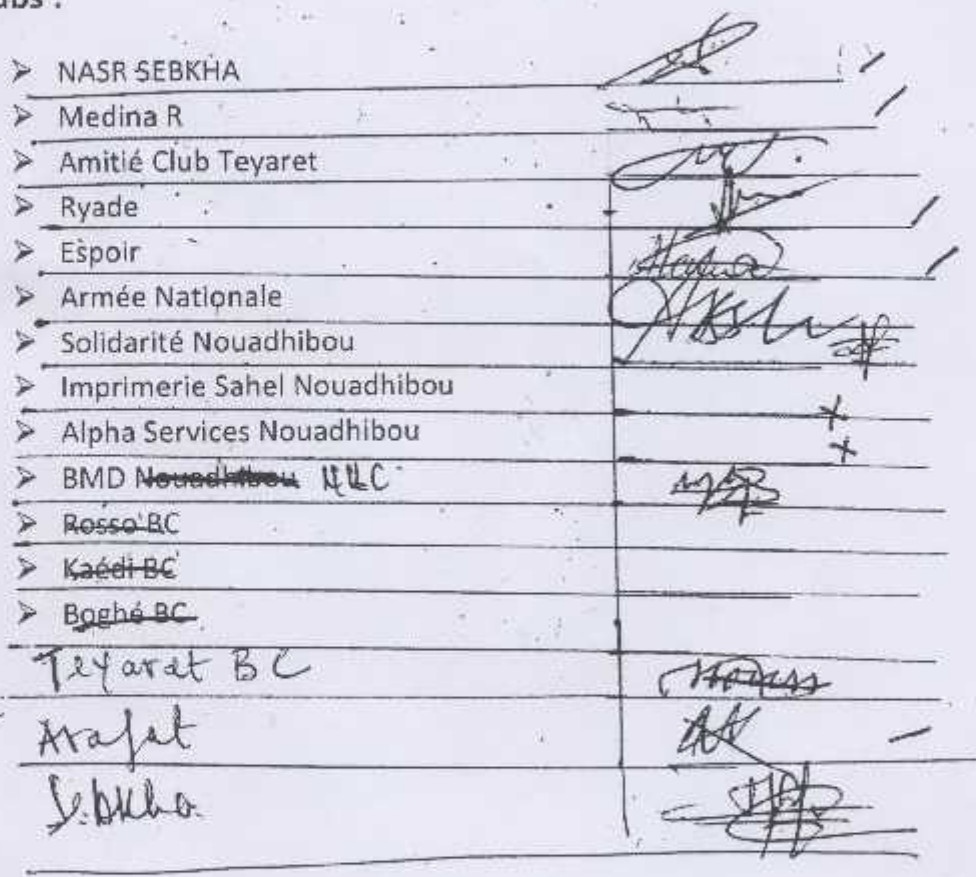 NASR SEBKHA
Medina R
Amitié Club Teyaret
Ryade
Espoir
Armée Nationale
Solidarité Nouadhibou
Imprimerie Sahel Nouadhibou
x
Alpha Services Nouadhibou
x
BMD Nouadhibou
Rosso BC
Kaédi BC
Boghé BC
Teyarat BC
Arafat
Sebkha